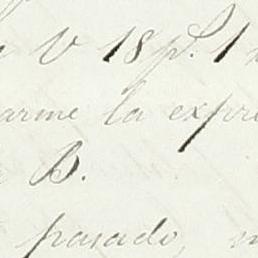 V 18 p. 1
arme la expre
B.
pasado,